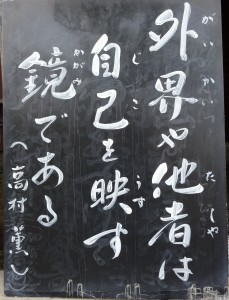 外界や他者は
がいかい たしゃ
自己を映す
じこ うつ
鏡である
かがみ
（高村薫）